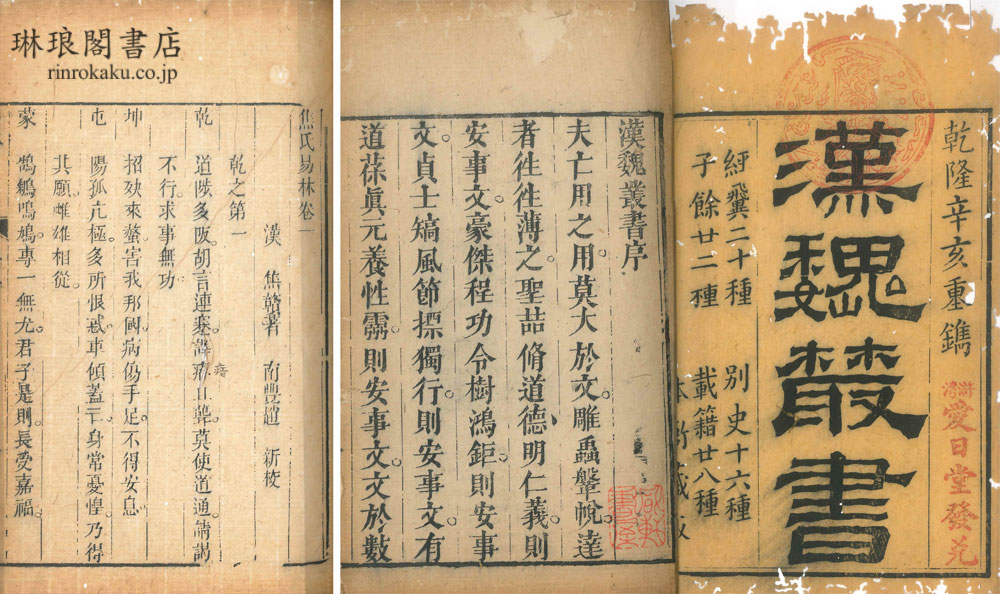 琳琅閣書店
rinrokaku.co.jp
乾隆辛亥重鐫
滸灣
愛日堂發兌
漢魏叢書
經翼二十種 別史十六種
子餘廿二種 載籍廿八種
漢魏叢書序
夫亡用之用莫大於文。雕蟲鞶帨。達
者徃徃薄之。聖喆脩道德明仁義。則
安事文。豪傑程功令樹鴻鉅。則安事
文。貞士矯風節摽獨行。則安事文。有
道葆眞元養性靈。則安事文。文於數
焦氏易林卷一
漢 焦贛著 南豐趙 新校
乾之第一
乾 道陟多阪。胡言連蹇。譯瘖且聾。莫使道通。請謁
不行。求事無功
坤 招殃來螫。害我邦國。病傷手足。不得安息。
屯 陽孤亢極。多所恨惑。車傾蓋亡。身常憂惶。乃得
其願。雌雄相從。
蒙 鵠鵴鳴鳩。專一無尤。君子是則。長受嘉福。